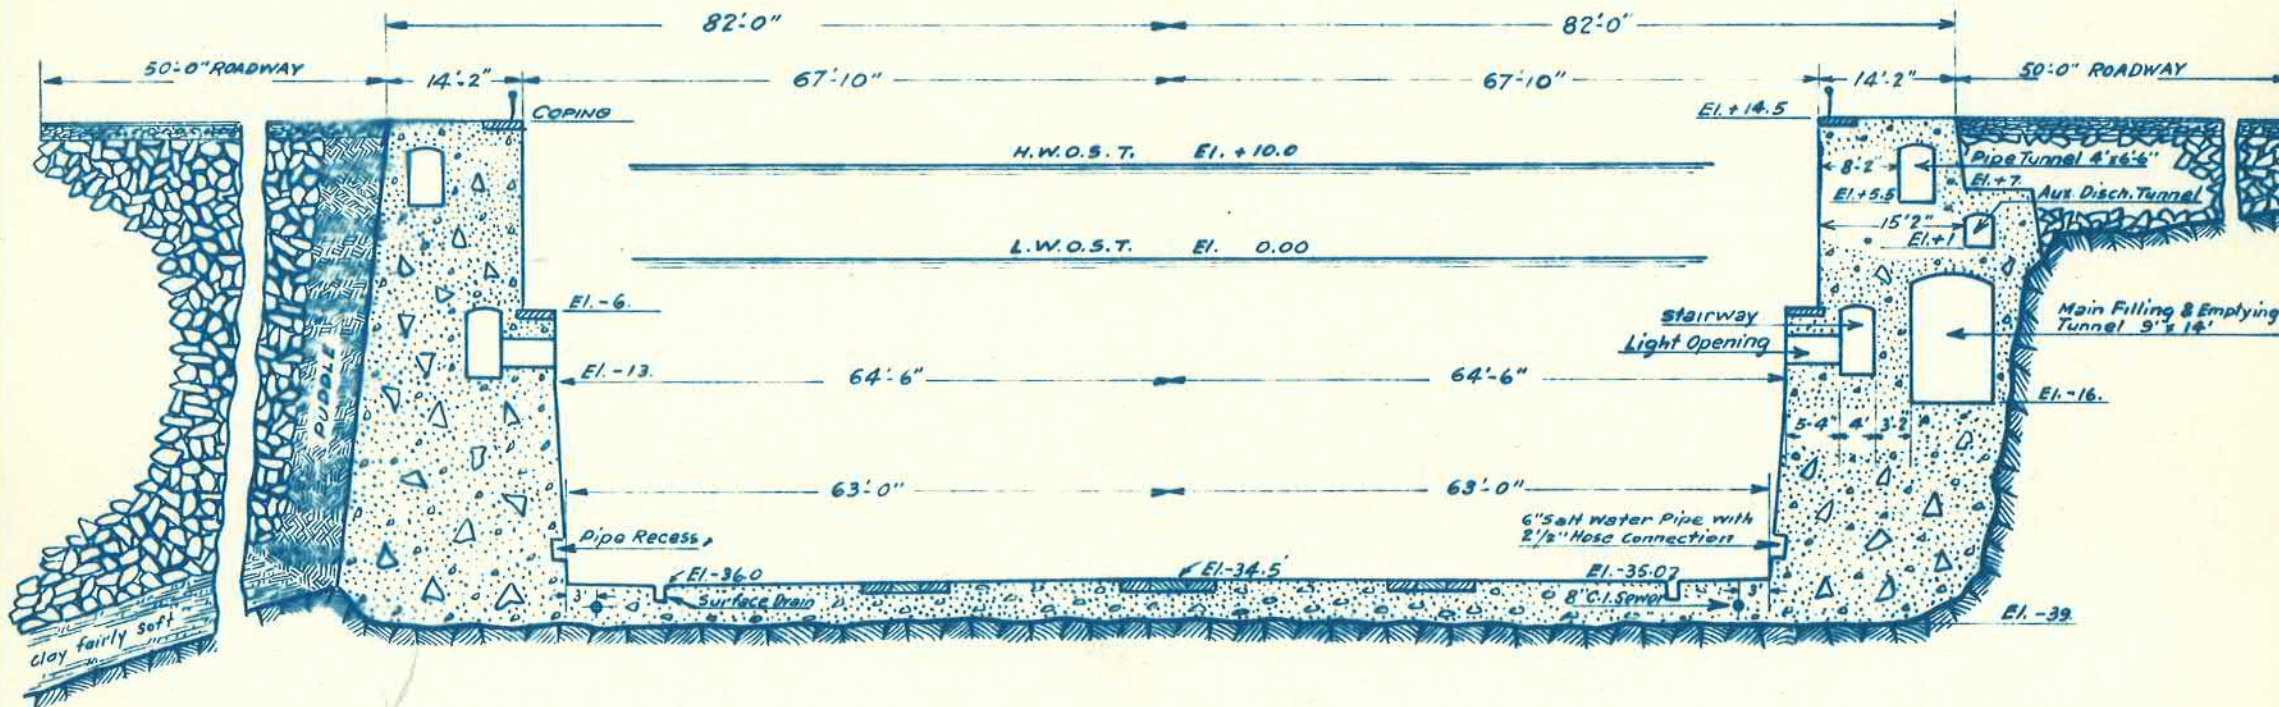 82'-0" 82'-0"
50'-0" ROADWAY 14'-2" 67'-10" 67'-10" 14'-2" 50'-0" ROADWAY
COPING
El. + 14.5
H.W.O.S.T. El. + 10.0
8-2
Pipe Tunnel 4'x6'-6"
El. + 5.5
El. + 7.
Aux. Disch. Tunnel
15'2"
El. + 1
L.W.O.S.T. El. 0.00
El. - 6.
Stairway
Light Opening
Main Filling & Emptying
Tunnel 9' x 14'
El. - 13.
64'-6" 64'-6"
El. - 16.
PUDDLE
5-4" 4' 3-2
63'-0" 63'-0"
Pipe Recess
6" Salt Water Pipe with
2 1/2" Hose Connection
El. - 36.0
El. - 34.5'
El. - 35.07
3'
Surface Drain
8" C.I. Sewer
3'
El. - 39.
Clay fairly soft